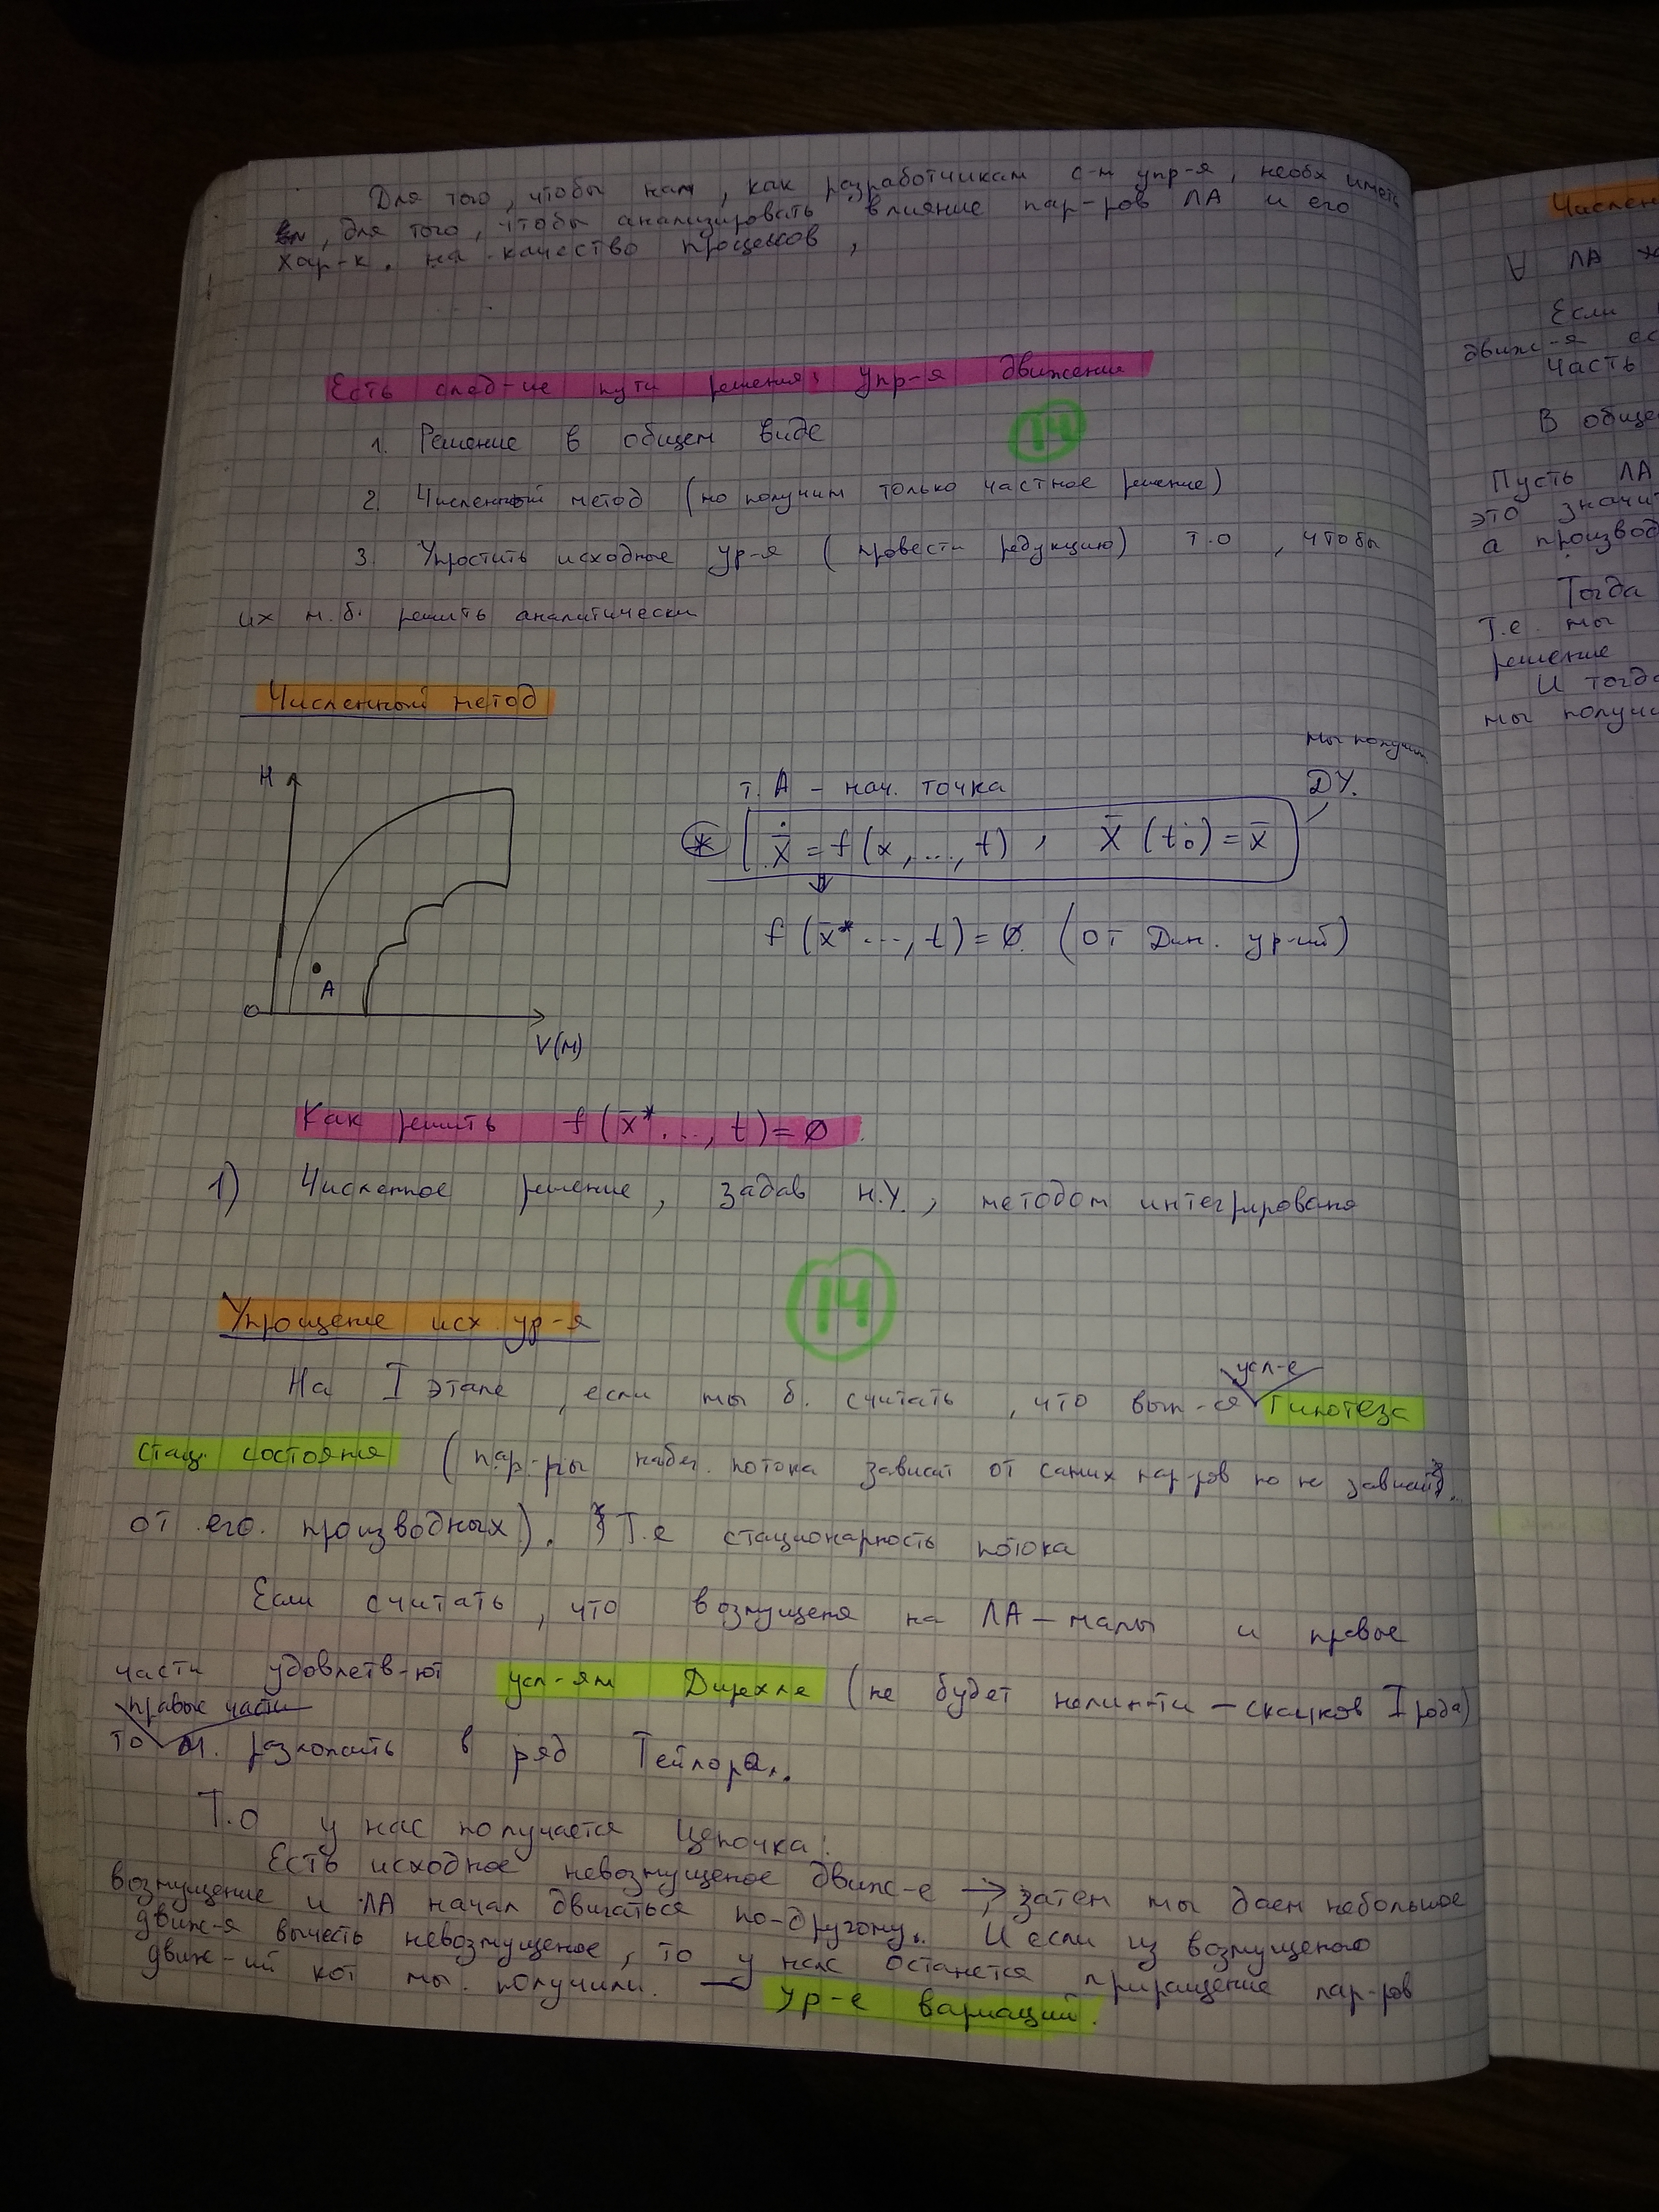 Для того, чтобы нам, как разработчикам с-м упр-я, необх иметь
, для того, чтобы анализировать влияние пар-ров ЛА и его
хар-к. на качество процессов,
Есть след-ие пути решения упр-я движения
14
1. Решение в общем виде
2. Численный метод (но получим только частное решение)
3. Упростить исходные ур-я (провести редукцию) т.о, чтобы
их м.б. решить аналитически
Численный метод
мы получим
H
т. A – нач. точка
ДУ.
* ẋ̄ = f(x, ..., t), X̄(t₀) = x̄
f(x̄* ..., t) = ∅. (от Дин. ур-ий)
A
O
V(м)
Как решить f(x̄* ..., t) = ∅
1) Численное решение, задав н.у., методом интегрированя
14
Упрощение исх. ур-я
усл-е
На I этапе, если мы б. считать, что вып-ся гипотеза
стац. состояния (пар-ры набег. потока зависят от самих пар-ров но не зависят
от его. производных). Т.е стационарность потока
Если считать, что возмущеня на ЛА – малы и правые
части удовлетв-ют усл-ям Дирехле (не будет нелин-ти – скачков I рода)
правые части
то м. разложить в ряд Тейлора.
Т.О у нас получается цепочка:
Есть исходное невозмущеное движ-е → затем мы даем небольшое
возмущение и ЛА начал двигаться по-другому. И если из возмущеного
движ-я вычесть невозмущеное, то у нас останется приращение пар-ров
движ-ий кот мы получили. → ур-е вариаций.
Числен
∀ ЛА
Если
движ-я
Часть
В общем
Пусть ЛА
это значит
а производ
Тогда
Т.е. мы
решение
И тогда
мы получи